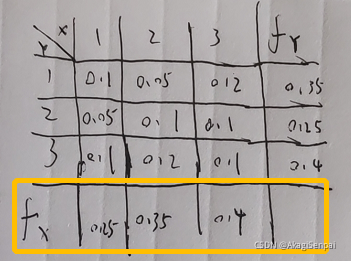 Y X 1 2 3 fY
1 0.1 0.05 0.2 0.35
2 0.05 0.1 0.1 0.25
3 0.1 0.2 0.1 0.4
fX 0.25 0.35 0.4
CSDN @AkagiSenpai